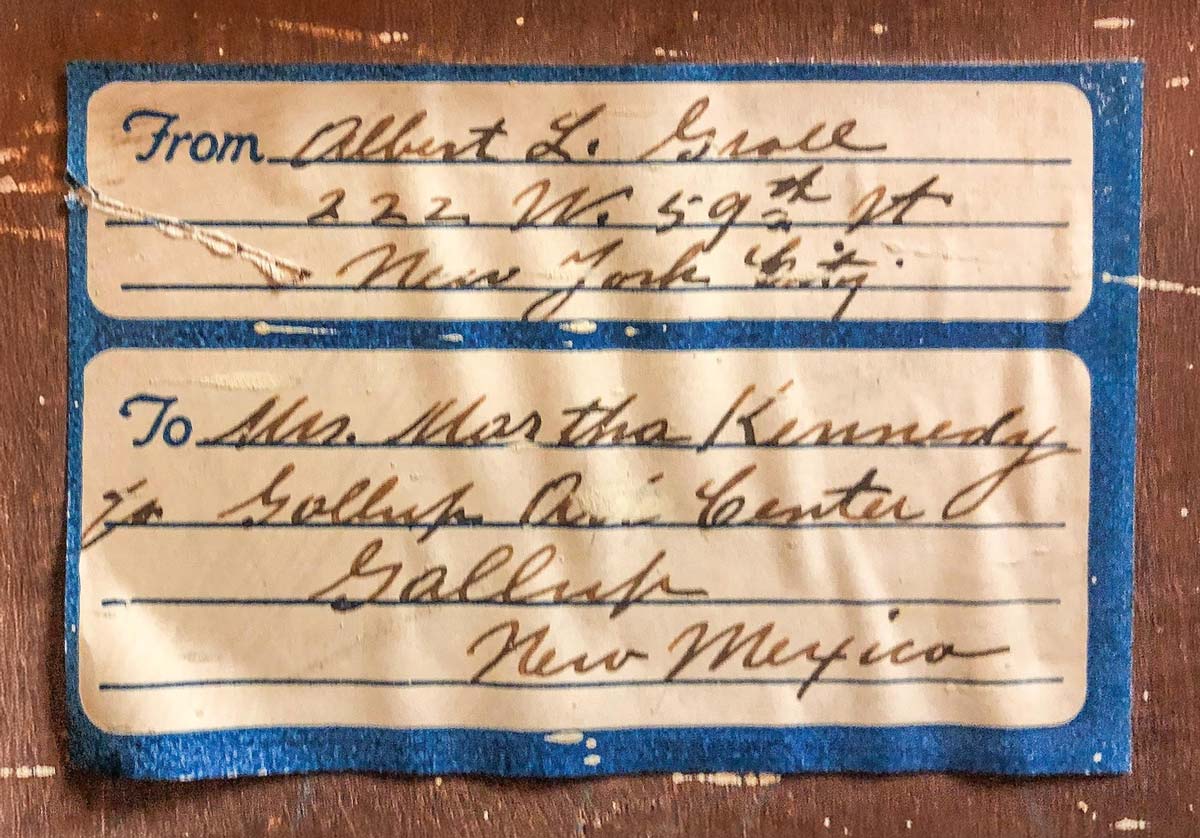 From Albert L. Groll
222 W. 59th St
New York City.
To Mrs. Martha Kennedy
c/o Gallup Center
Gallup
New Mexico